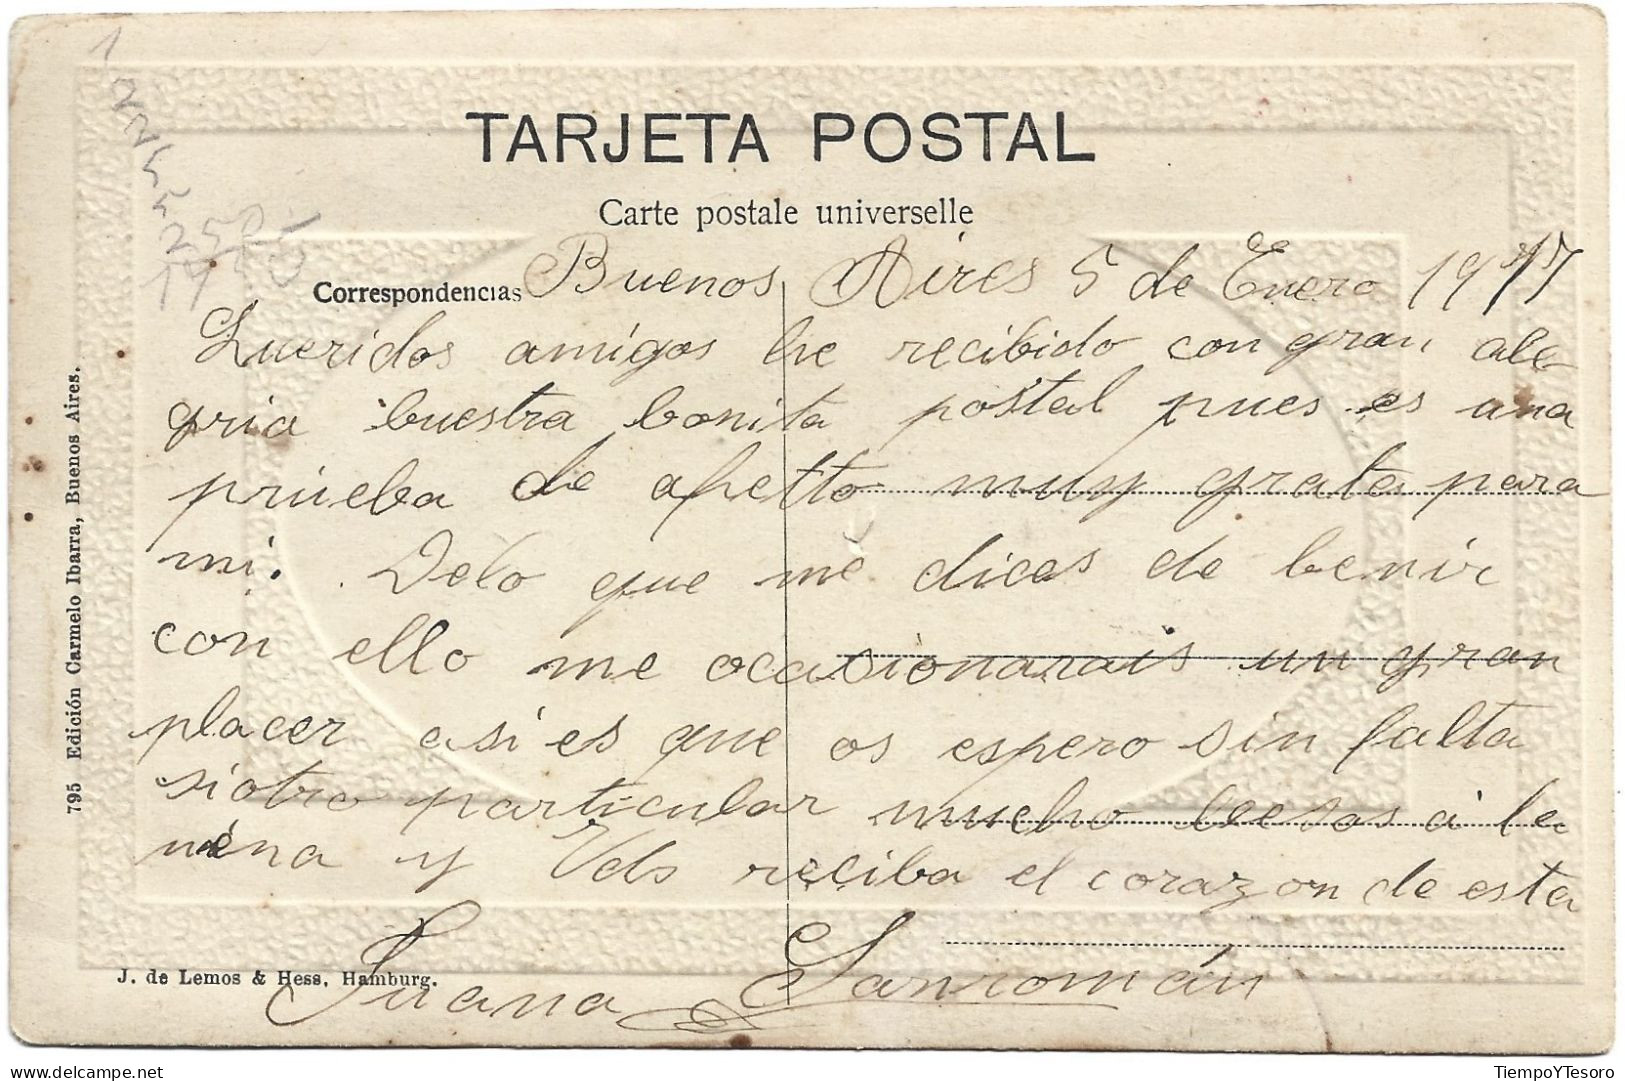 TARJETA POSTAL
Carte postale universelle
Correspondencias Buenos Aires 5 de Enero 1917
Queridos amigos he recibido con gran ale
gria buestra bonita postal pues es una
prueba de afetto muy grata para
mi. Delo que me dices de benir
con ello me ocasionarais un gran
placer asi es que os espero sin falta
siotro particular mucho beesos á la
nena y Vds reciba el corazon de esta
Juana Sanromán
795 Edición Carmelo Ibarra, Buenos Aires.
J. de Lemos & Hess, Hamburg.
TiempoYTesoro
delcampe.net